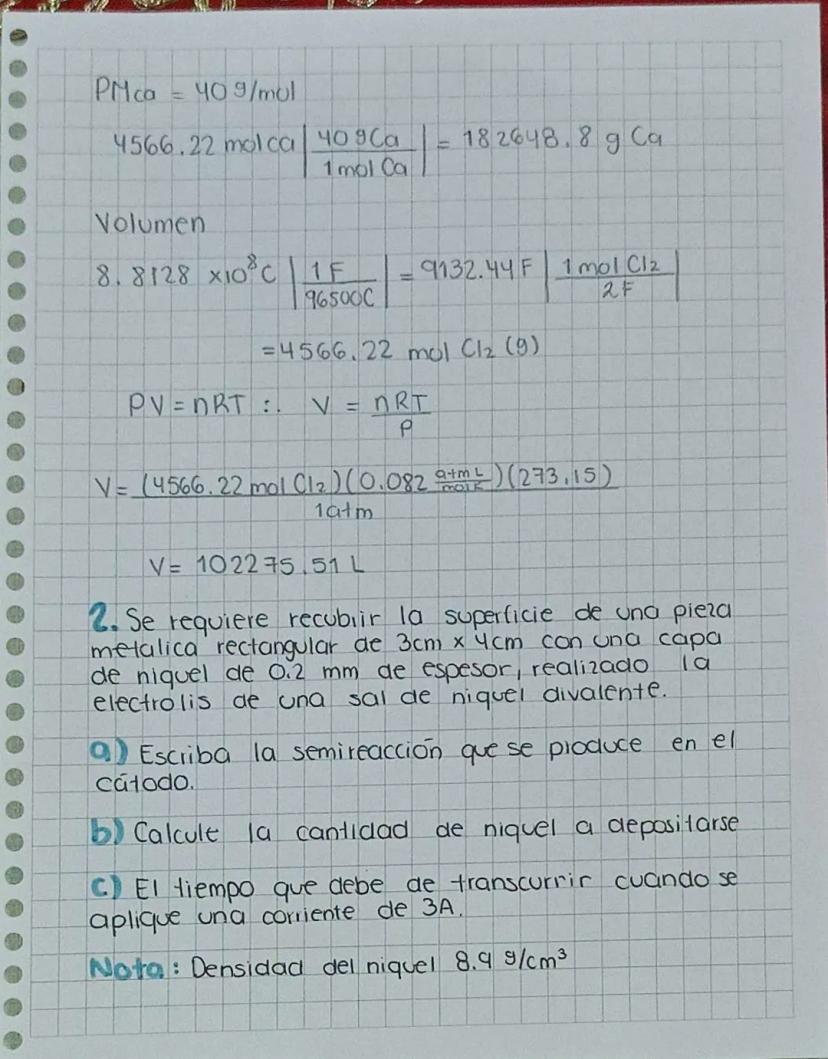 PMca = 40 g/mol
4566.22 molca | 40 gCa / 1 mol Ca | = 182648.8 g Ca
Volumen
8.8128 x10⁸C | 1 F / 96500C | = 9132.44 F | 1 mol Cl2 / 2 F |
= 4566.22 mol Cl2 (g)
PV = nRT ∴ V = nRT / P
V = (4566.22 mol Cl2)(0.082 atm L / mol K)(273.15) / 1atm
V = 102275.51 L
2. Se requiere recubrir la superficie de una pieza
metalica rectangular de 3cm x 4cm con una capa
de niquel de 0.2 mm de espesor, realizado la
electrolis de una sal de niquel divalente.
a) Escriba la semireacción que se produce en el
cátodo.
b) Calcule la cantidad de niquel a depositarse
c) El tiempo que debe de transcurrir cuando se
aplique una corriente de 3A.
Nota: Densidad del niquel 8.9 g/cm³